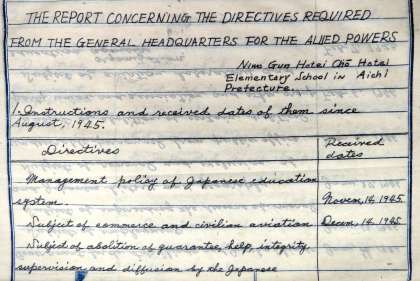 THE REPORT CONCERNING THE DIRECTIVES REQUIRED
FROM THE GENERAL HEADQUARTERS FOR THE ALLIED POWERS
Niwa Gun Hotei Chō Hotei
Elementary School in Aichi
Prefecture.
1. Instructions and received dates of them since
August, 1945.
Directives
Received
dates
Management policy of Japanese education
system.
Novem, 14. 1945.
Subject of commerce and civilian aviation
Decem, 14. 1945
Subject of abolition of guarantee, help, integrity,
supervision and diffusion by the Japanese